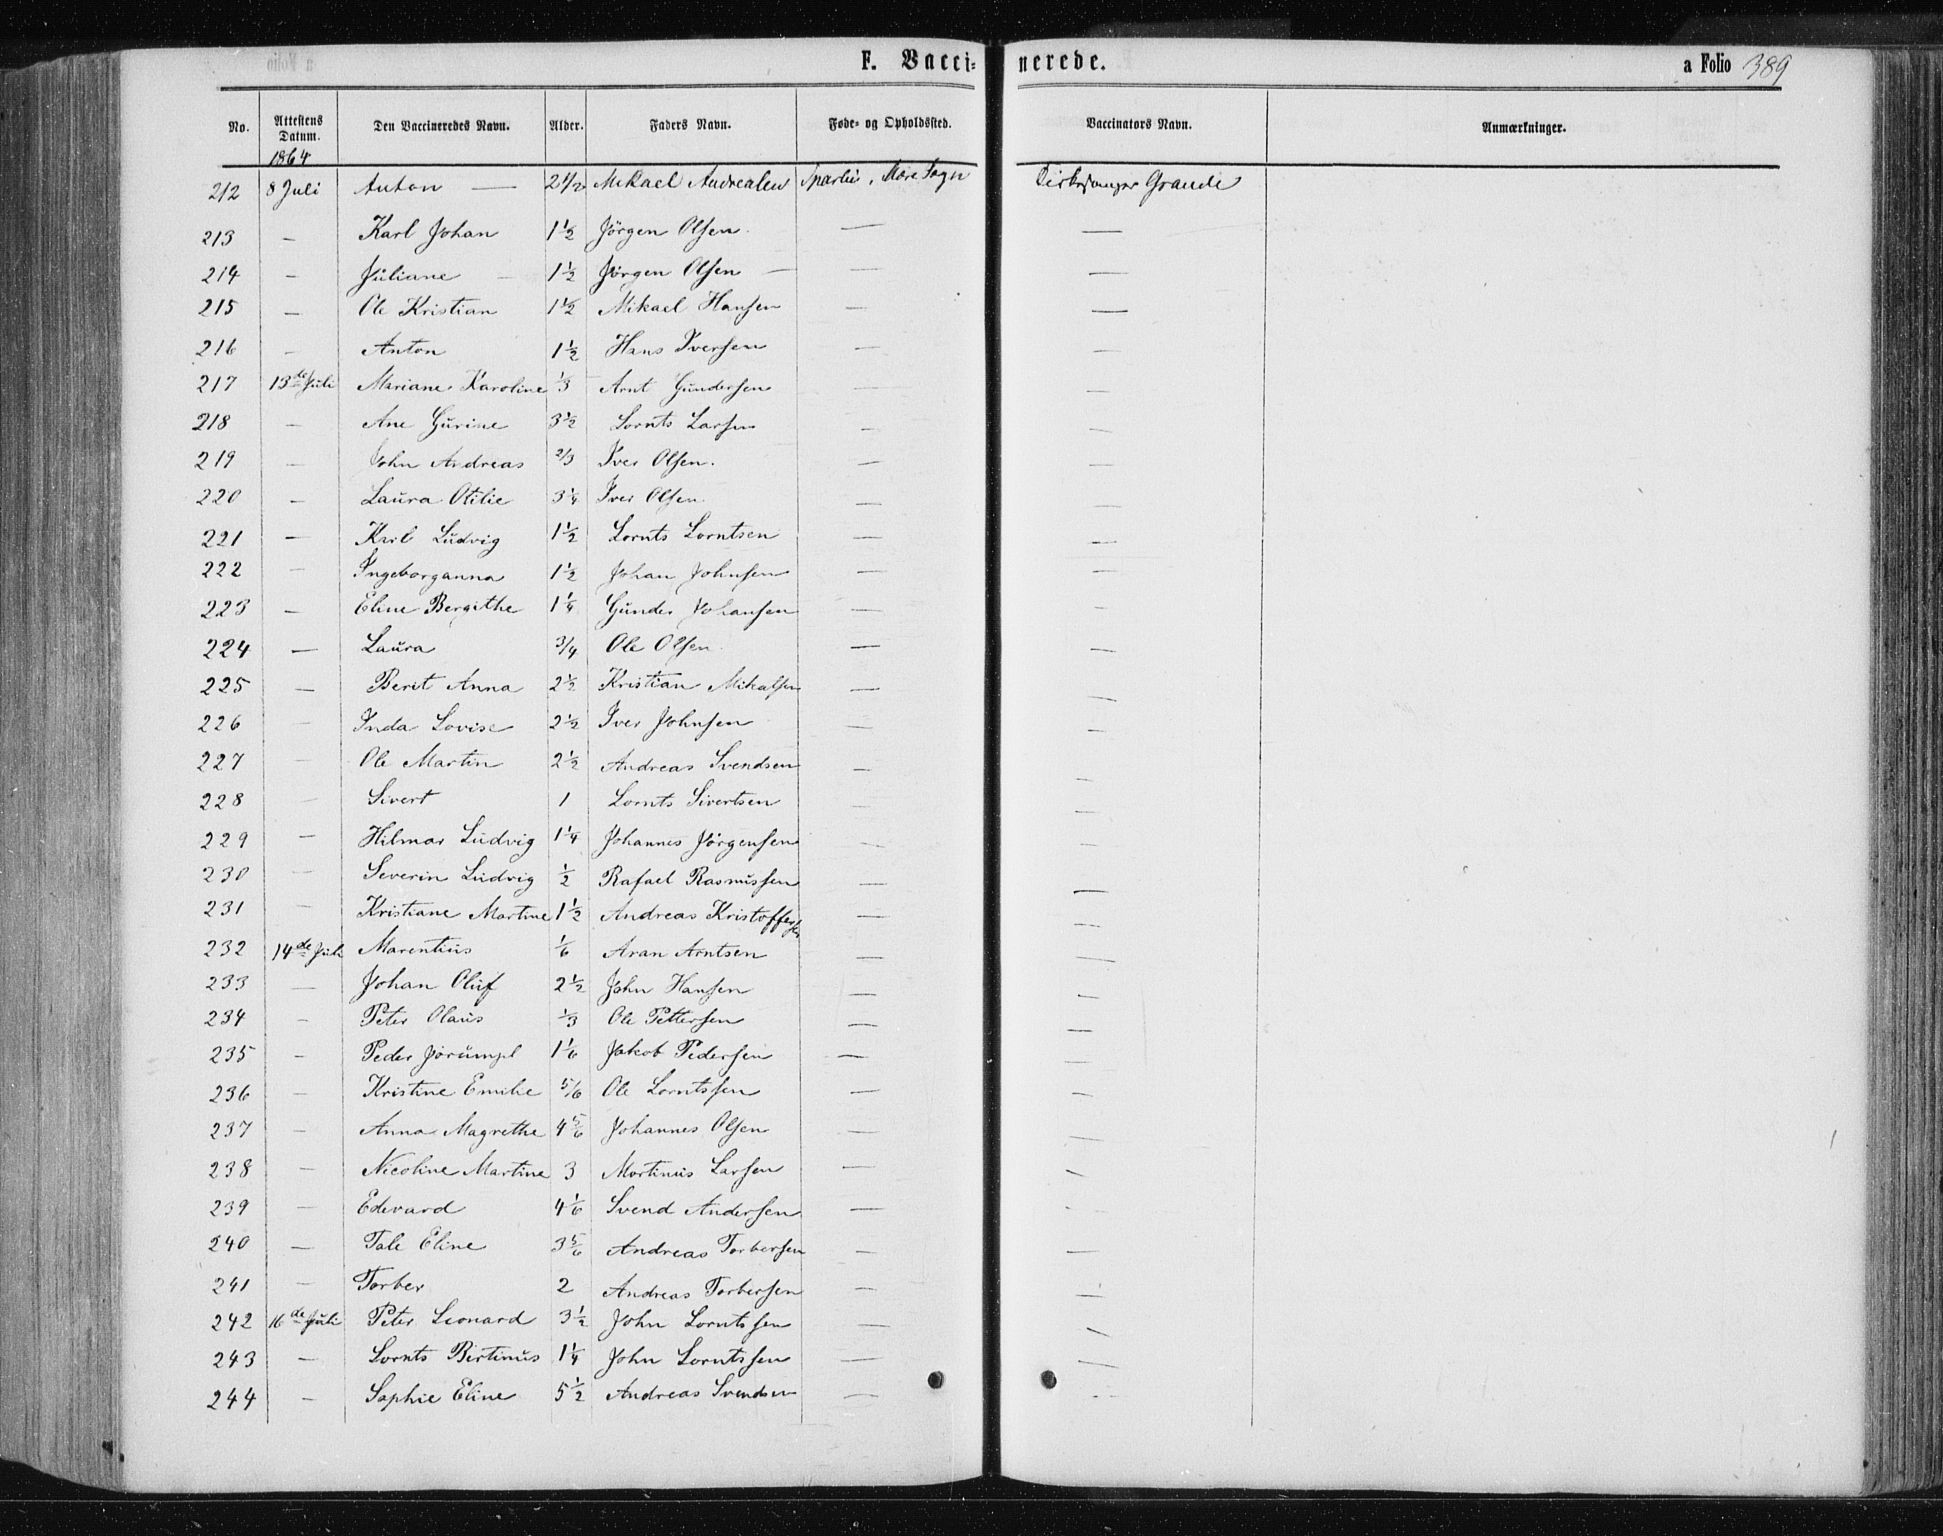 F. Vacci-nerede.
a Folio 389
No. Attestens Datum. Den Vaccineredes Navn. Alder. Faders Navn. Føde- og Opholdssted. Vaccinators Navn. Anmærkninger.
1864
212 8 Juli Anton — 2 1/2 Mikael Andrealen Sparbu, Mære Sogn Kirkesanger Grande
213 — Karl Johan 1 1/2 Jörgen Olsen — —
214 — Juliane — 1 1/2 Jörgen Olsen — — —
215 — Ole Kristian 1 1/2 Mikael Hansen — —
216 — Anton 1 1/2 Hans Iversen — —
217 13de Juli Mariane Karoline 1/3 Arnt Gundersen — —
218 — Ane Gurine 3 1/2 Lornts Larsen — —
219 — John Andreas 2/3 Iver Olsen. — —
220 — Laura Otilie 3 1/4 Iver Olsen — —
221 — Karl Ludvig 1 1/2 Lornts Lorntsen — —
222 — Ingeborganna 1 1/2 Johan Johnsen — —
223 — Eline Bergithe 1 1/4 Gunder Johansen — —
224 — Laura 3/4 Ole Olsen — —
225 — Berit Anna 2 1/2 Kristian Mikalsen — —
226 — Inda Lovise 2 1/2 Iver Johnsen — —
227 — Ole Martin 2 1/2 Andreas Svendsen — —
228 — Sivert 1 Lornts Sivertsen — —
229 — Hilmar Ludvig 1 1/4 Johannes Jörgensen — —
230 — Severin Ludvig 1/2 Rafael Rasmussen — —
231 — Kristiane Martine 1 1/2 Andreas Kristoffersen — —
232 14de Juli Marentius 1/6 Aran Arntsen — —
233 — Johan Oluf 2 1/2 John Hansen — —
234 — Peter Olaus 1/3 Ole Pettersen — —
235 — Peder 1 1/6 Jakob Pedersen — —
236 — Kristine Emilie 5/6 Ole Lorntssen — —
237 — Anna Magrethe 4 5/6 Johannes Olsen — —
238 — Nicoline Martine 3 Martinus Larsen — —
239 — Edevard 4 1/6 Svend Andersen — —
240 — Tale Eline 3 5/6 Andreas Torbersen — —
241 — Torber 2 Andreas Torbersen — —
242 16de Juli Peter Leonard 3 1/2 John Lorntssen — —
243 — Lornts Birtinus 1 1/4 John Lorntssen — —
244 — Sophie Eline 5 1/2 Andreas Svendsen — —